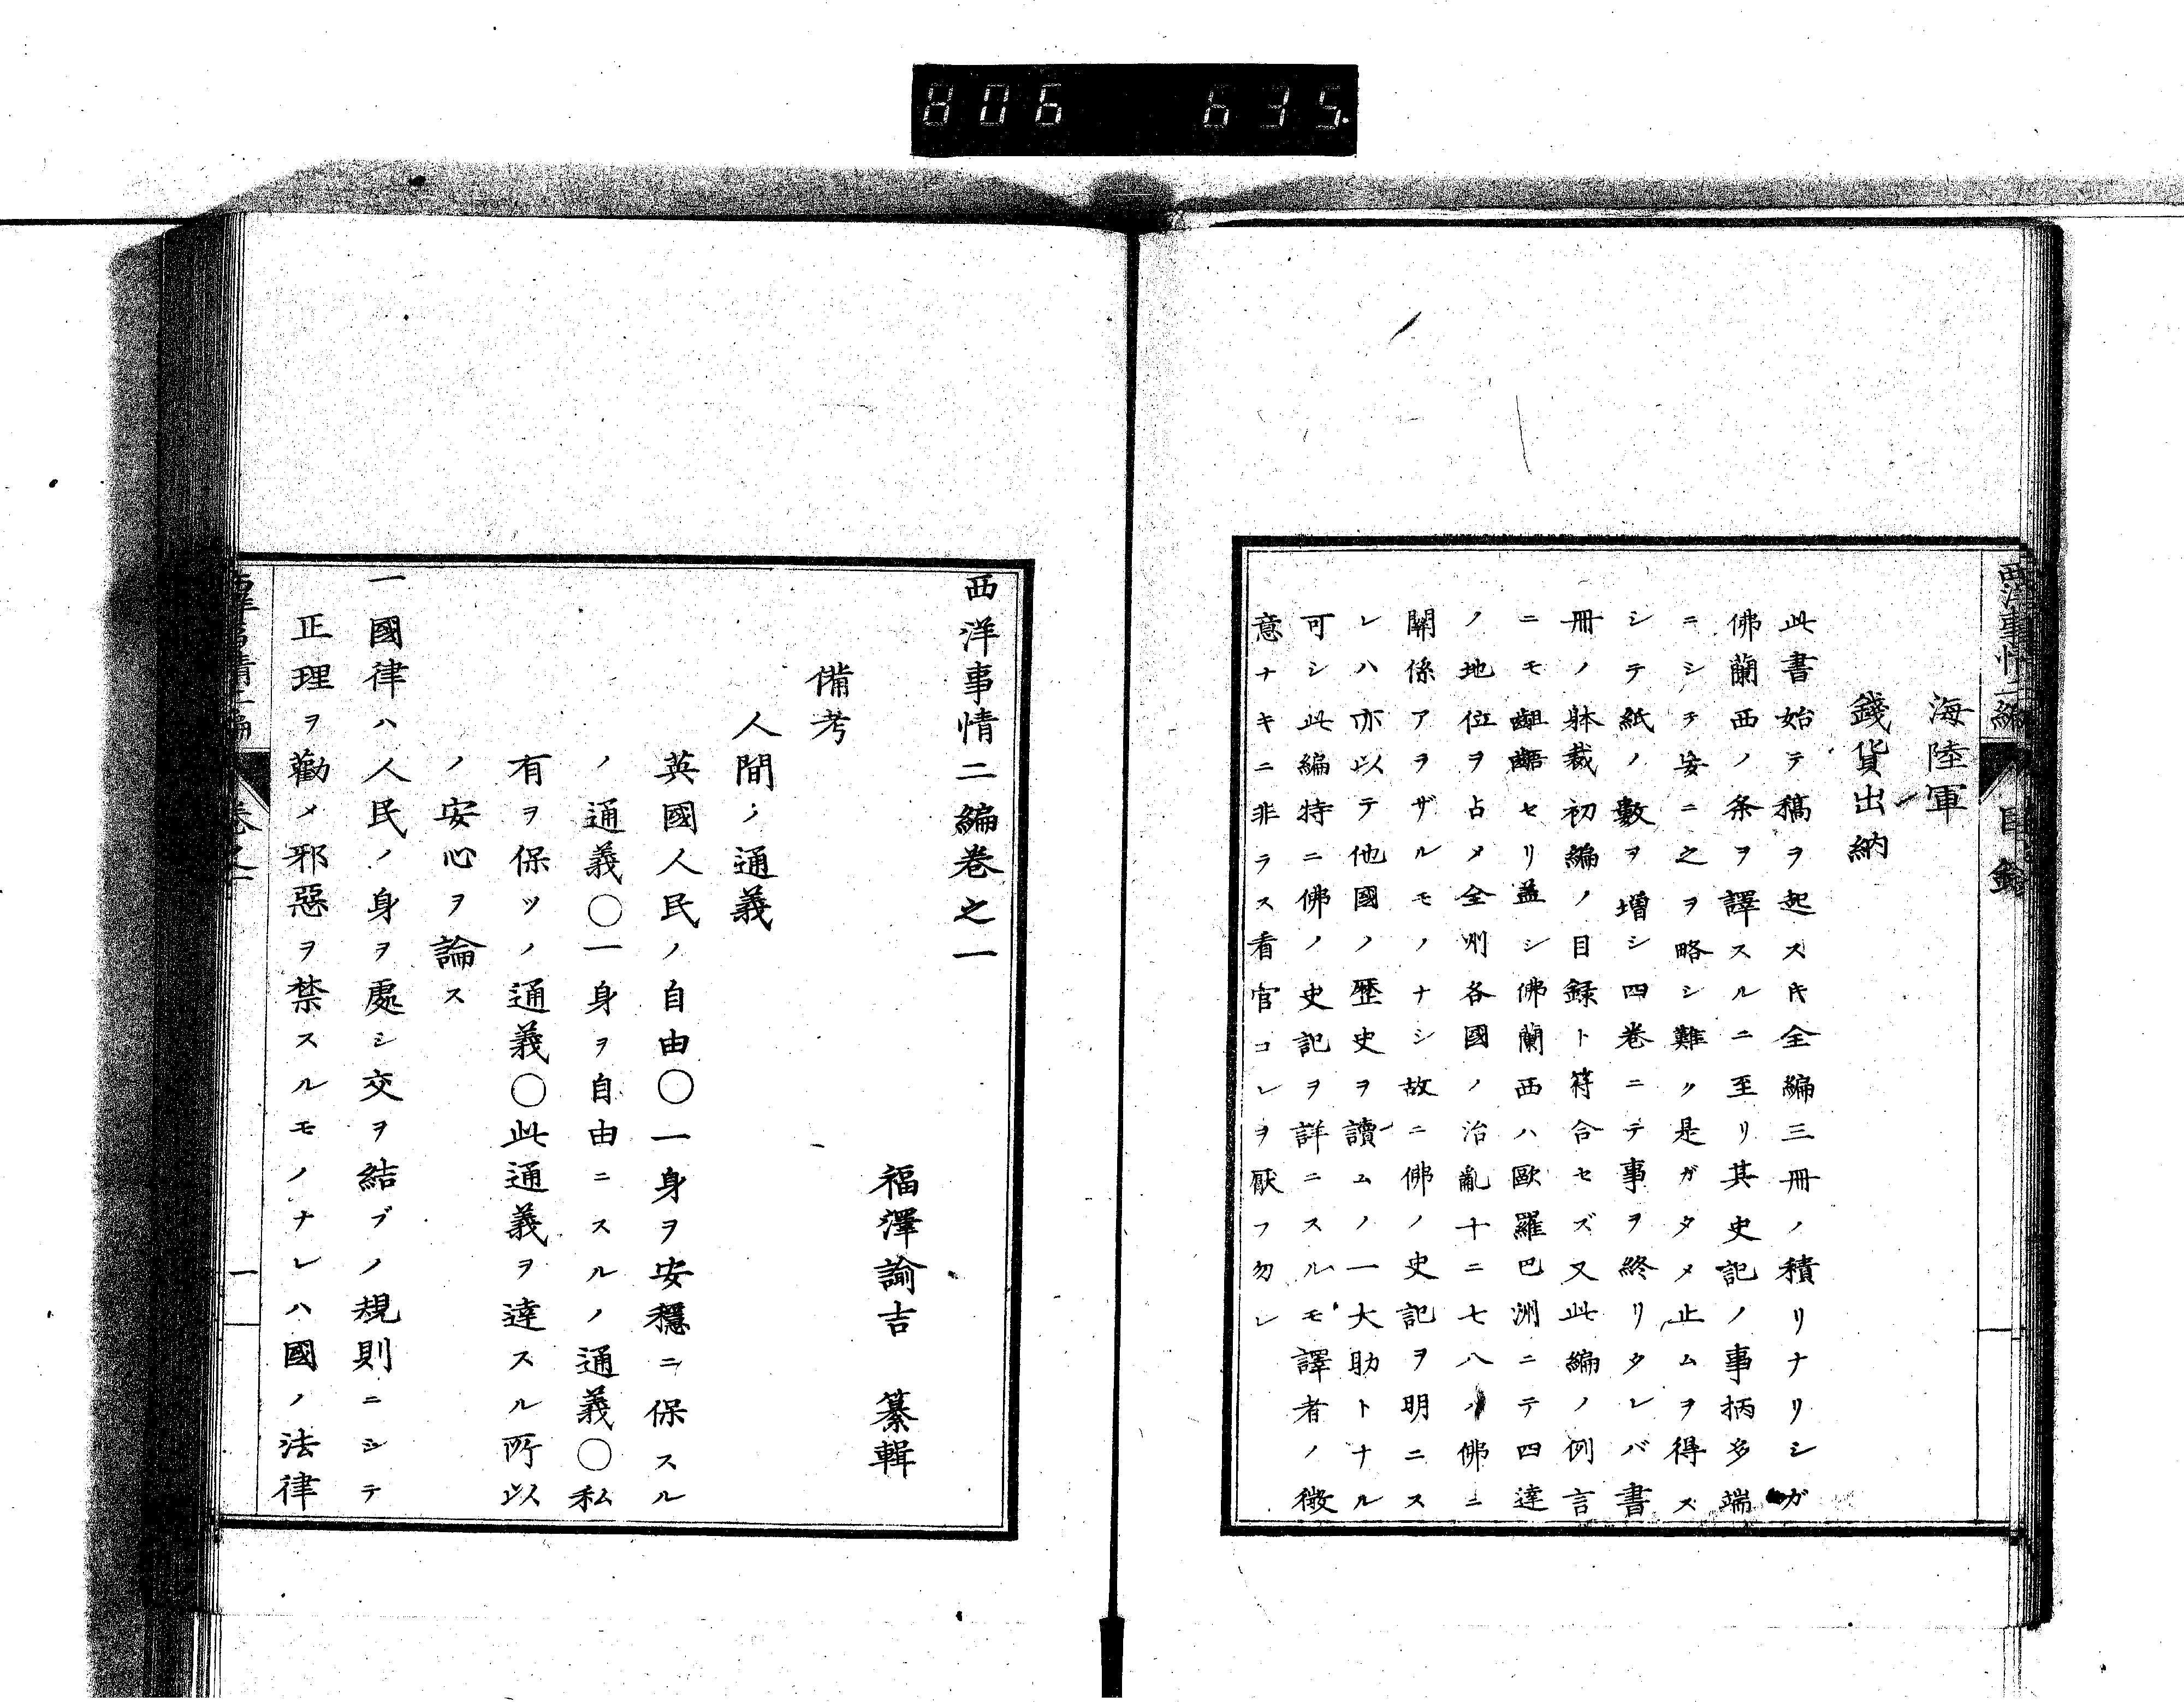 806 635.
西洋事情二編 目録
海陸軍
錢貨出納
此書始テ稿ヲ起スキ全編三冊ノ積リナリシガ
佛蘭西ノ条ヲ譯スルニ至リ其史記ノ事柄多端
ニシテ妄ニ之ヲ略シ難ク是ガタメ止ムヲ得ズ
シテ紙ノ數ヲ増シ四巻ニテ事ヲ終リタレバ書
冊ノ躰裁初編ノ目録ト符合セズ又此編ノ例言
ニモ齟齬セリ盖シ佛蘭西ハ歐羅巴洲ニテ四達
ノ地位ヲ占メ全州各國ノ治亂十ニ七八ハ佛ニ
關係アヲザルモノナシ故ニ佛ノ史記ヲ明ニス
レハ亦以テ他國ノ歴史ヲ讀ムノ一大助トナル
可シ此編特ニ佛ノ史記ヲ詳ニスルモ譯者ノ微
意ナキニ非ラス看官コレヲ厭フ勿レ
西洋事情二編巻之一
福澤諭吉 纂輯
備考
人間ノ通義
英國人民ノ自由〇一身ヲ安穩ニ保スル
ノ通義〇一身ヲ自由ニスルノ通義〇私
有ヲ保ツノ通義〇此通義ヲ達スル所以
ノ安心ヲ論ス
一國律ハ人民ノ身ヲ處シ交ヲ結ブノ規則ニシテ
正理ヲ勸メ邪惡ヲ禁スルモノナレハ國ノ法律
西洋事情二編 巻之一
一